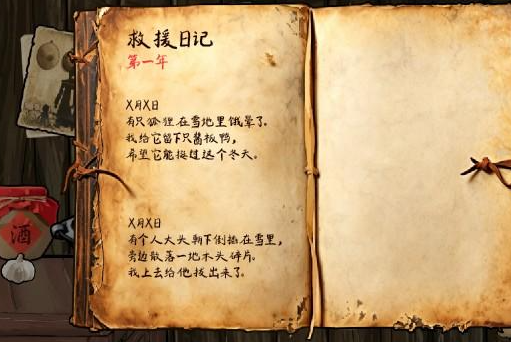 救援日记
第一年
X月X日
有只狐狸在雪地里饿晕了。
我给它留下只酱板鸭，
希望它能挺过这个冬天。
X月X日
有个人大头朝下倒插在雪里，
旁边散落一地木头碎片。
我上去给他拔出来了。
酒